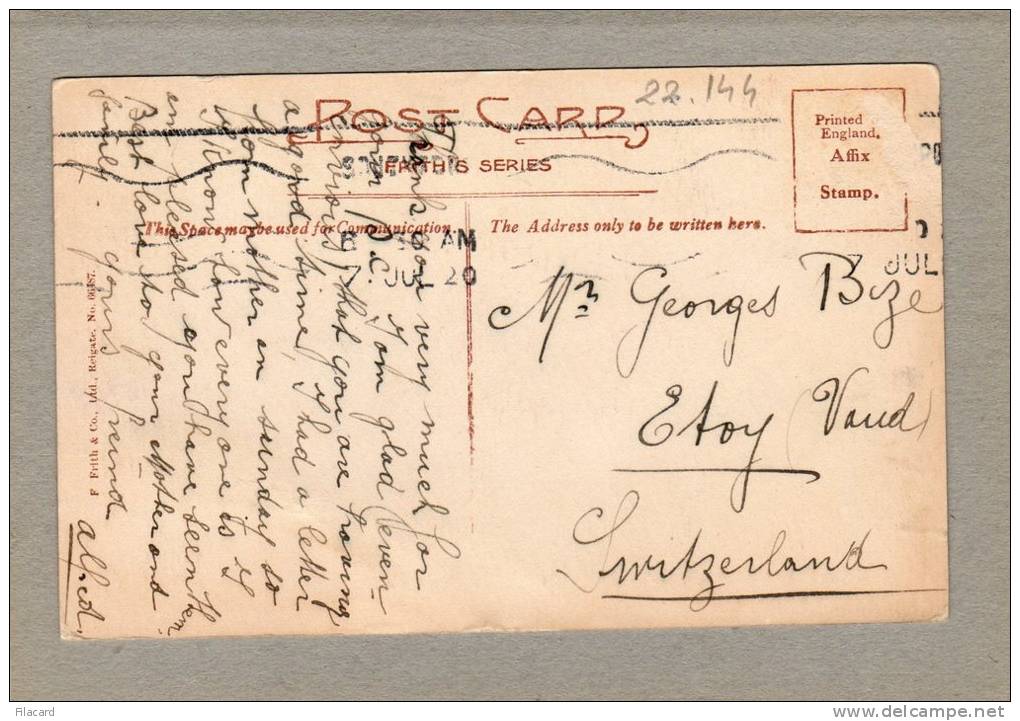 22.144
POST CARD
FRITH'S SERIES
Printed
England.
Affix
Stamp.
This Space may be used for Communication.
The Address only to be written here.
AM
7 JUL 20
JUL
Thank you very much for
your P.C. I am glad (even
that you are having
a good time, I had a letter
from mother on sunday so
I know how every one is I
am pleased you have seen them
Best love to your Mother and
family.
yours freind
Alfred.
Mr Georges Bize
Etoy (Vaud)
Switzerland
F Frith & Co., Ltd., Reigate. No. 66487.
Filacard
www.delcampe.net